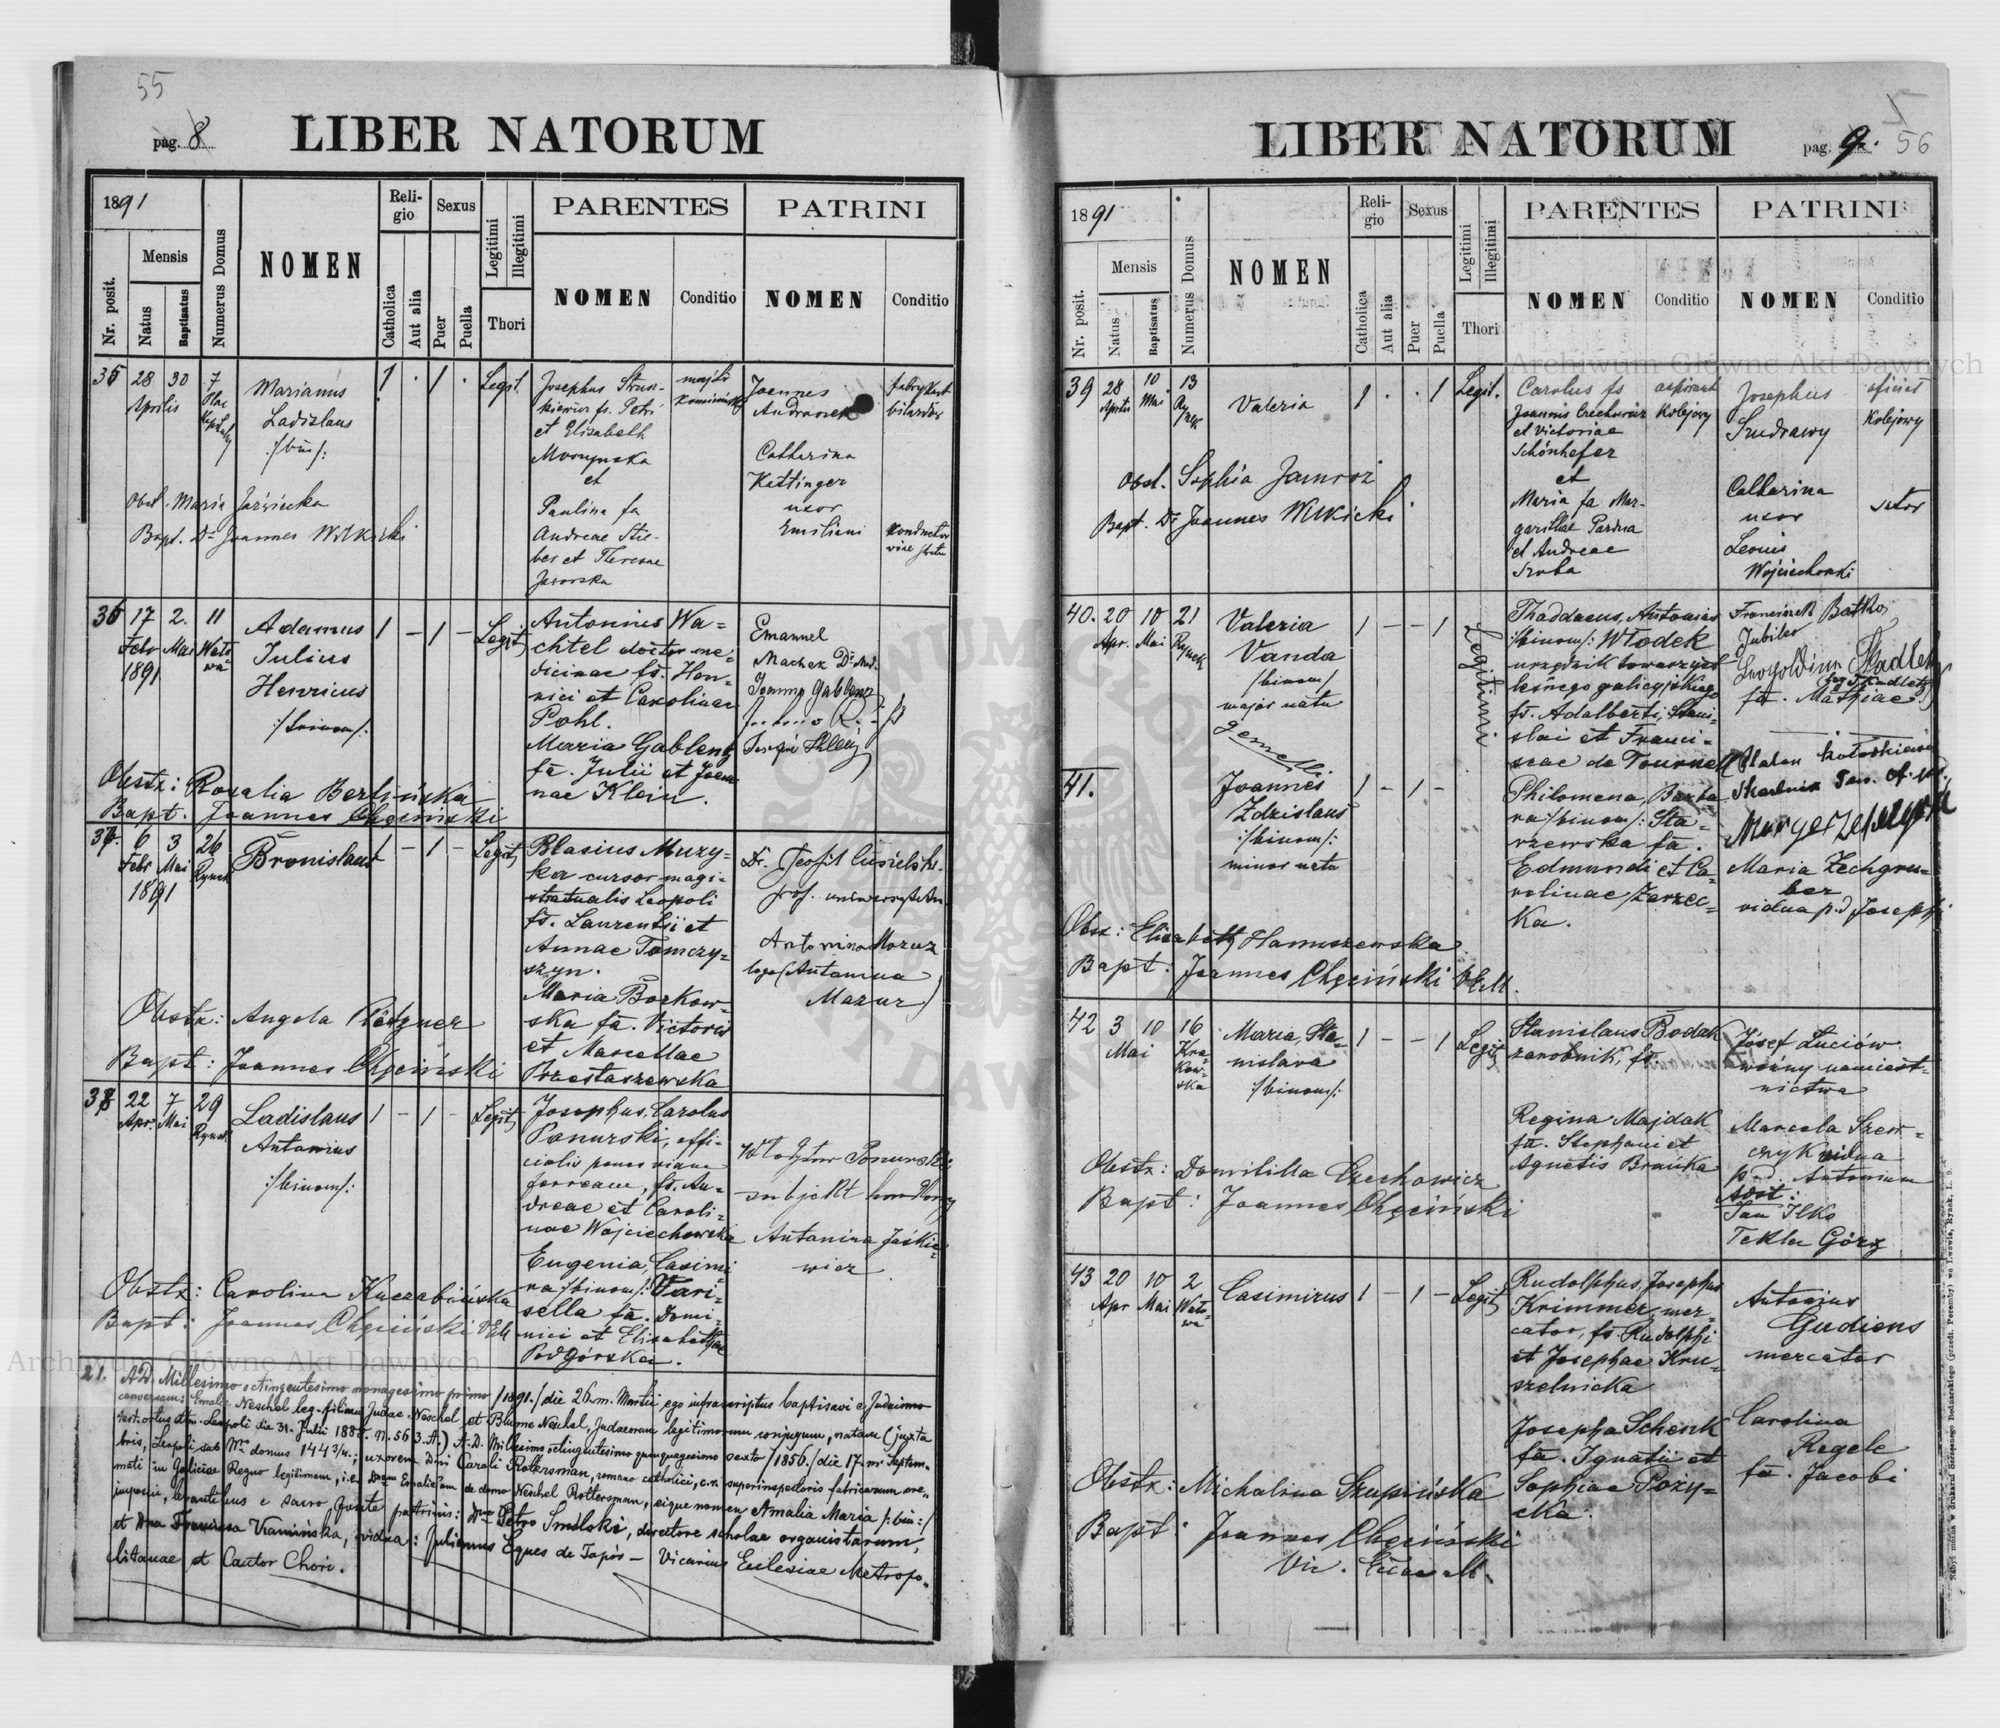 55
pag. 8
LIBER NATORUM
1891
Nr. posit.
Mensis
Natus
Baptisatus
Numerus Domus
NOMEN
Reli-
gio
Catholica
Aut alia
Sexus
Puer
Puella
Legitimi
Illegitimi
Thori
PARENTES
NOMEN
Conditio
PATRINI
NOMEN
Conditio
35
28 30 7
Aprilis
Marianus
Ladislaus
:/bin/:
1 . 1 .
Legit.
et Elisabeth
et
Paulina fa
Andreae Stie-
ber et Theresae
Jaworska
Joannes
Catharina
Kettinger
uxor
Emiliani
Obst. Maria
Bapt. Dr Joannes
36 17 2. 11
Febr Mai Wało-
1891 wa
Adamus
Julius
Henricus
:/trinom/:
1 – 1 –
Legit
Antonius Wa-
chtel doctor me-
dicinae fs. Hen-
rici et Carolinae
Pohl.
Maria Gablenz
fa. Julii et Joan-
nae Klein.
Emanuel
Machek Dr Med.
Joanna Gablenz
Obstx: Rosalia Berlińska
Bapt. Joannes Chęciński
37 6 3 26
Febr Mai Rynek
1891
Bronislaus
1 – 1 –
Legit
Blasius Muzy-
ka cursor magi-
stratualis Leopoli
fs. Laurentii et
Annae Tomczy-
szyn.
Maria Borkow-
ska fa. Victoris
et Marcellae
Przestaszewska
Dr. Teofil Ciesielski
prof. uniwersytetu
Antonina Mazur
(Antonina
Mazur)
Obstx: Angela
Bapt: Joannes Chęciński
38 22 7 29
Apr. Mai Rynek
Ladislaus
Antonius
:/binom/:
1 – 1 –
Legit
Josephus, Carolus
Ponurski, offi-
cialis penes viam
ferream, fs. An-
dreae et Caroli-
nae Wojciechowska
Eugenia, Casimi
ra /binom/: Pari-
sella fa. Domi-
nici et Elisabethae
Podgórska.
Ponurski
subjekt handlowy
Antonina Jaśkie-
wicz
Obstx: Carolina Kucrabińska
Bapt: Joannes Chęciński VEM
21. A.D. Millesimo octingentesimo nonagesimo primo /1891./ die 26. m. Martii, ego infrascriptus baptisavi e Judaismo
conversam: Emalie Neschel leg. filiam Judae Neschel et Blume Neschel, Judaeorum legitimorum conjugum, natam (juxta
test. ortus dto. Leopoli die 31. Julii 188 . n. 563. A.) A.D. Millesimo octingentesimo quinquagesimo sexto /1856./ die 17. m. Septem-
bris, Leopoli sub Nro domus 144 3/4.; uxorem Dni Caroli Rottersman, romano catholici, c.r. superinspectoris fabricarum ore-
mati in Galiciae Regno legitimam, i.e. Dnam Emaliam de domo Neschel Rottersman, eique nomen Amalia Maria /:bin:/
imposui, levantibus e sacro fonte patrinis: Dno Petro Smolski, directore scholae organistarum,
et Dna Francisca Kamińska, vidua: Julianus Eques de Topór – Vicarius Ecclesiae Metropo-
litanae et Cantor Chori.
LIBER NATORUM
pag. 9.
56
1891
Nr. posit.
Mensis
Natus
Baptisatus
Numerus Domus
NOMEN
Reli-
gio
Catholica
Aut alia
Sexus
Puer
Puella
Legitimi
Illegitimi
Thori
PARENTES
NOMEN
Conditio
PATRINI
NOMEN
Conditio
39 28 10 13
Aprilis Mai Ry-
nek
Valeria
1 . . 1
Legit.
Carolus fs
Joannis Czechowicz
et Victoriae
Schönhefer
et
Maria fa Mar-
garithae Pardua
et Andreae
Sroka
aspirant
kolejowy
Josephus
Catharina
uxor
Leonis
Wojciechowski
oficiał
kolejowy
sutor
Obst. Sophia Jamroż
Bapt. Dr Joannes
40. 20 10 21
Apr. Mai Rynek
Valeria
Vanda
/binom/
major natu
gemelli
1 – – 1
Legitimi
41.
Joannes
Zdzislaus
:/binom/:
minor natu
1 – 1 –
Thaddaeus, Antonius
/binom/: Włodek
urzędnik towarzyst
leśnego galicyjskiego
fs. Adalberti, Stani-
slai et Franci-
scae de Tournell
Philomena, Barba-
ra /binom/: Sta-
rzewska fa.
Edmundi et Ca-
rolinae Zarzec-
ka.
Franciszek Batko
Jubiler
Leopoldina Skadletz
fa. Mathiae)
Maria Zechgru-
ber
vidua p.d. Josephi
Obstx: Elisabeth Hanuszewska
Bapt: Joannes Chęciński VEM.
42 3 10 16
Mai Kra-
kow-
ska
Maria, Sta-
nislava
:/binom/:
1 – – 1
Legit
Stanislaus Bodak
zarobnik, fs.
Regina Majdak
fa. Stephani et
Agnetis Brańka
Józef Łuciów
woźny namiest-
nictwa
Marcela Szew-
czyk vidua
p.d. Antonium
Asst:
Jan Ilko
Tekla Górz
Obstx: Domitilla Czechowicz
Bapt: Joannes Chęciński
43 20 10 2
Apr Mai Wało-
wa
Casimirus
1 – 1 –
Legit
Rudolphus, Josephus
Krimmer, mer-
cator, fs. Rudolphi
et Josephae Kru-
szelnicka
Josepha Schenk
fa. Ignatii et
Sophiae Poży-
cka.
Antonius
Gudiens
mercator
Carolina
Regele
fa. Jacobi
Obstx: Michalina Skupińska
Bapt: Joannes Chęciński
Vic. Eccae M.
Archiwum Główne Akt Dawnych
Archiwum Główne Akt Dawnych